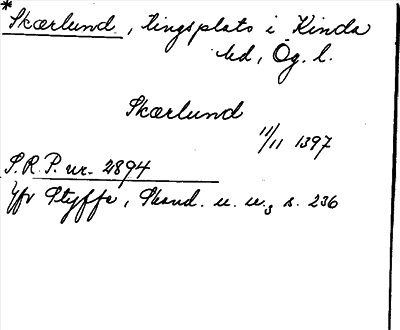 *Skærlund, tingsplats i Kinda
hd, Ög. l.
Skærlund
11/11 1397
S.R.P. nr. 2894
Jfr Styffe, Skand. u. u.3 s. 236